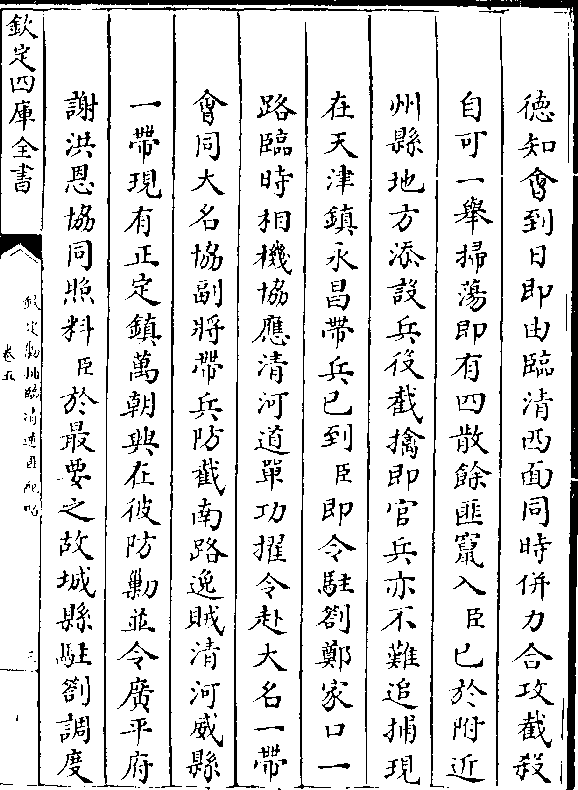 德知會到日即由臨清西面同時併力合攻截殺
自可一舉掃蕩即有四散餘匪竄入臣已於附近
州縣地方添設兵役截擒即官兵亦不難追捕現
在天津鎮永昌帶兵已到臣即令駐劄鄭家口一
路臨時相機協應清河道單功擢令赴大名一帶
會同大名協副將帶兵防截南路逸賊清河威縣
一帶現有正定鎮萬朝興在彼防勦並令廣平府
謝洪恩協同照料臣於最要之故城縣駐劄調度
欽定四庫全書
欽定勦捕臨清逆匪紀略
卷五